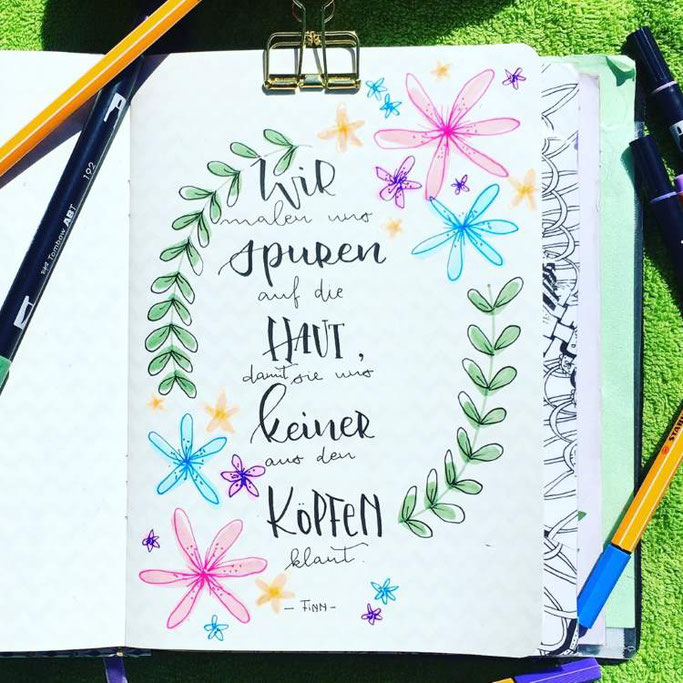 Wir
malen uns
Spuren
auf die
HAUT,
damit sie uns
keiner
aus den
KÖPFEN
klaut.
- FINN -
192
Tombow ABT
STABI